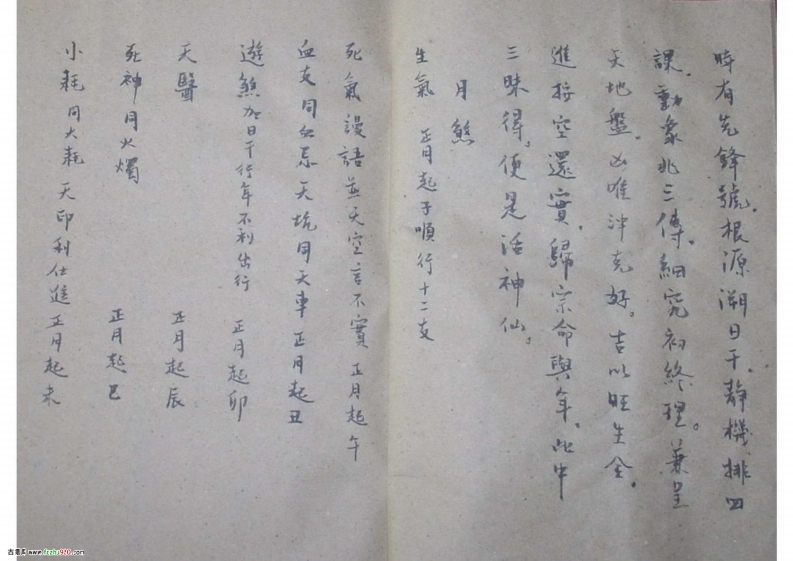 時有先鋒號。根源溯日干。靜機排四
課。動象兆三傳。細究初終理。兼呈
天地盤。凶唯沖克好。吉以旺生全。
進將空還實。歸宗命與年。此中
三昧得。便是活神仙。
月煞
生氣 正月起子順行十二支
死氣謾語並天空言不實 正月起午
血支同血忌 天坑同天車 正月起丑
遊煞加日干行年不利出行 正月起卯
天醫 正月起辰
死神同火燭 正月起巳
小耗同大耗 天印利仕進 正月起未
古籍库 www.fozhu920.com